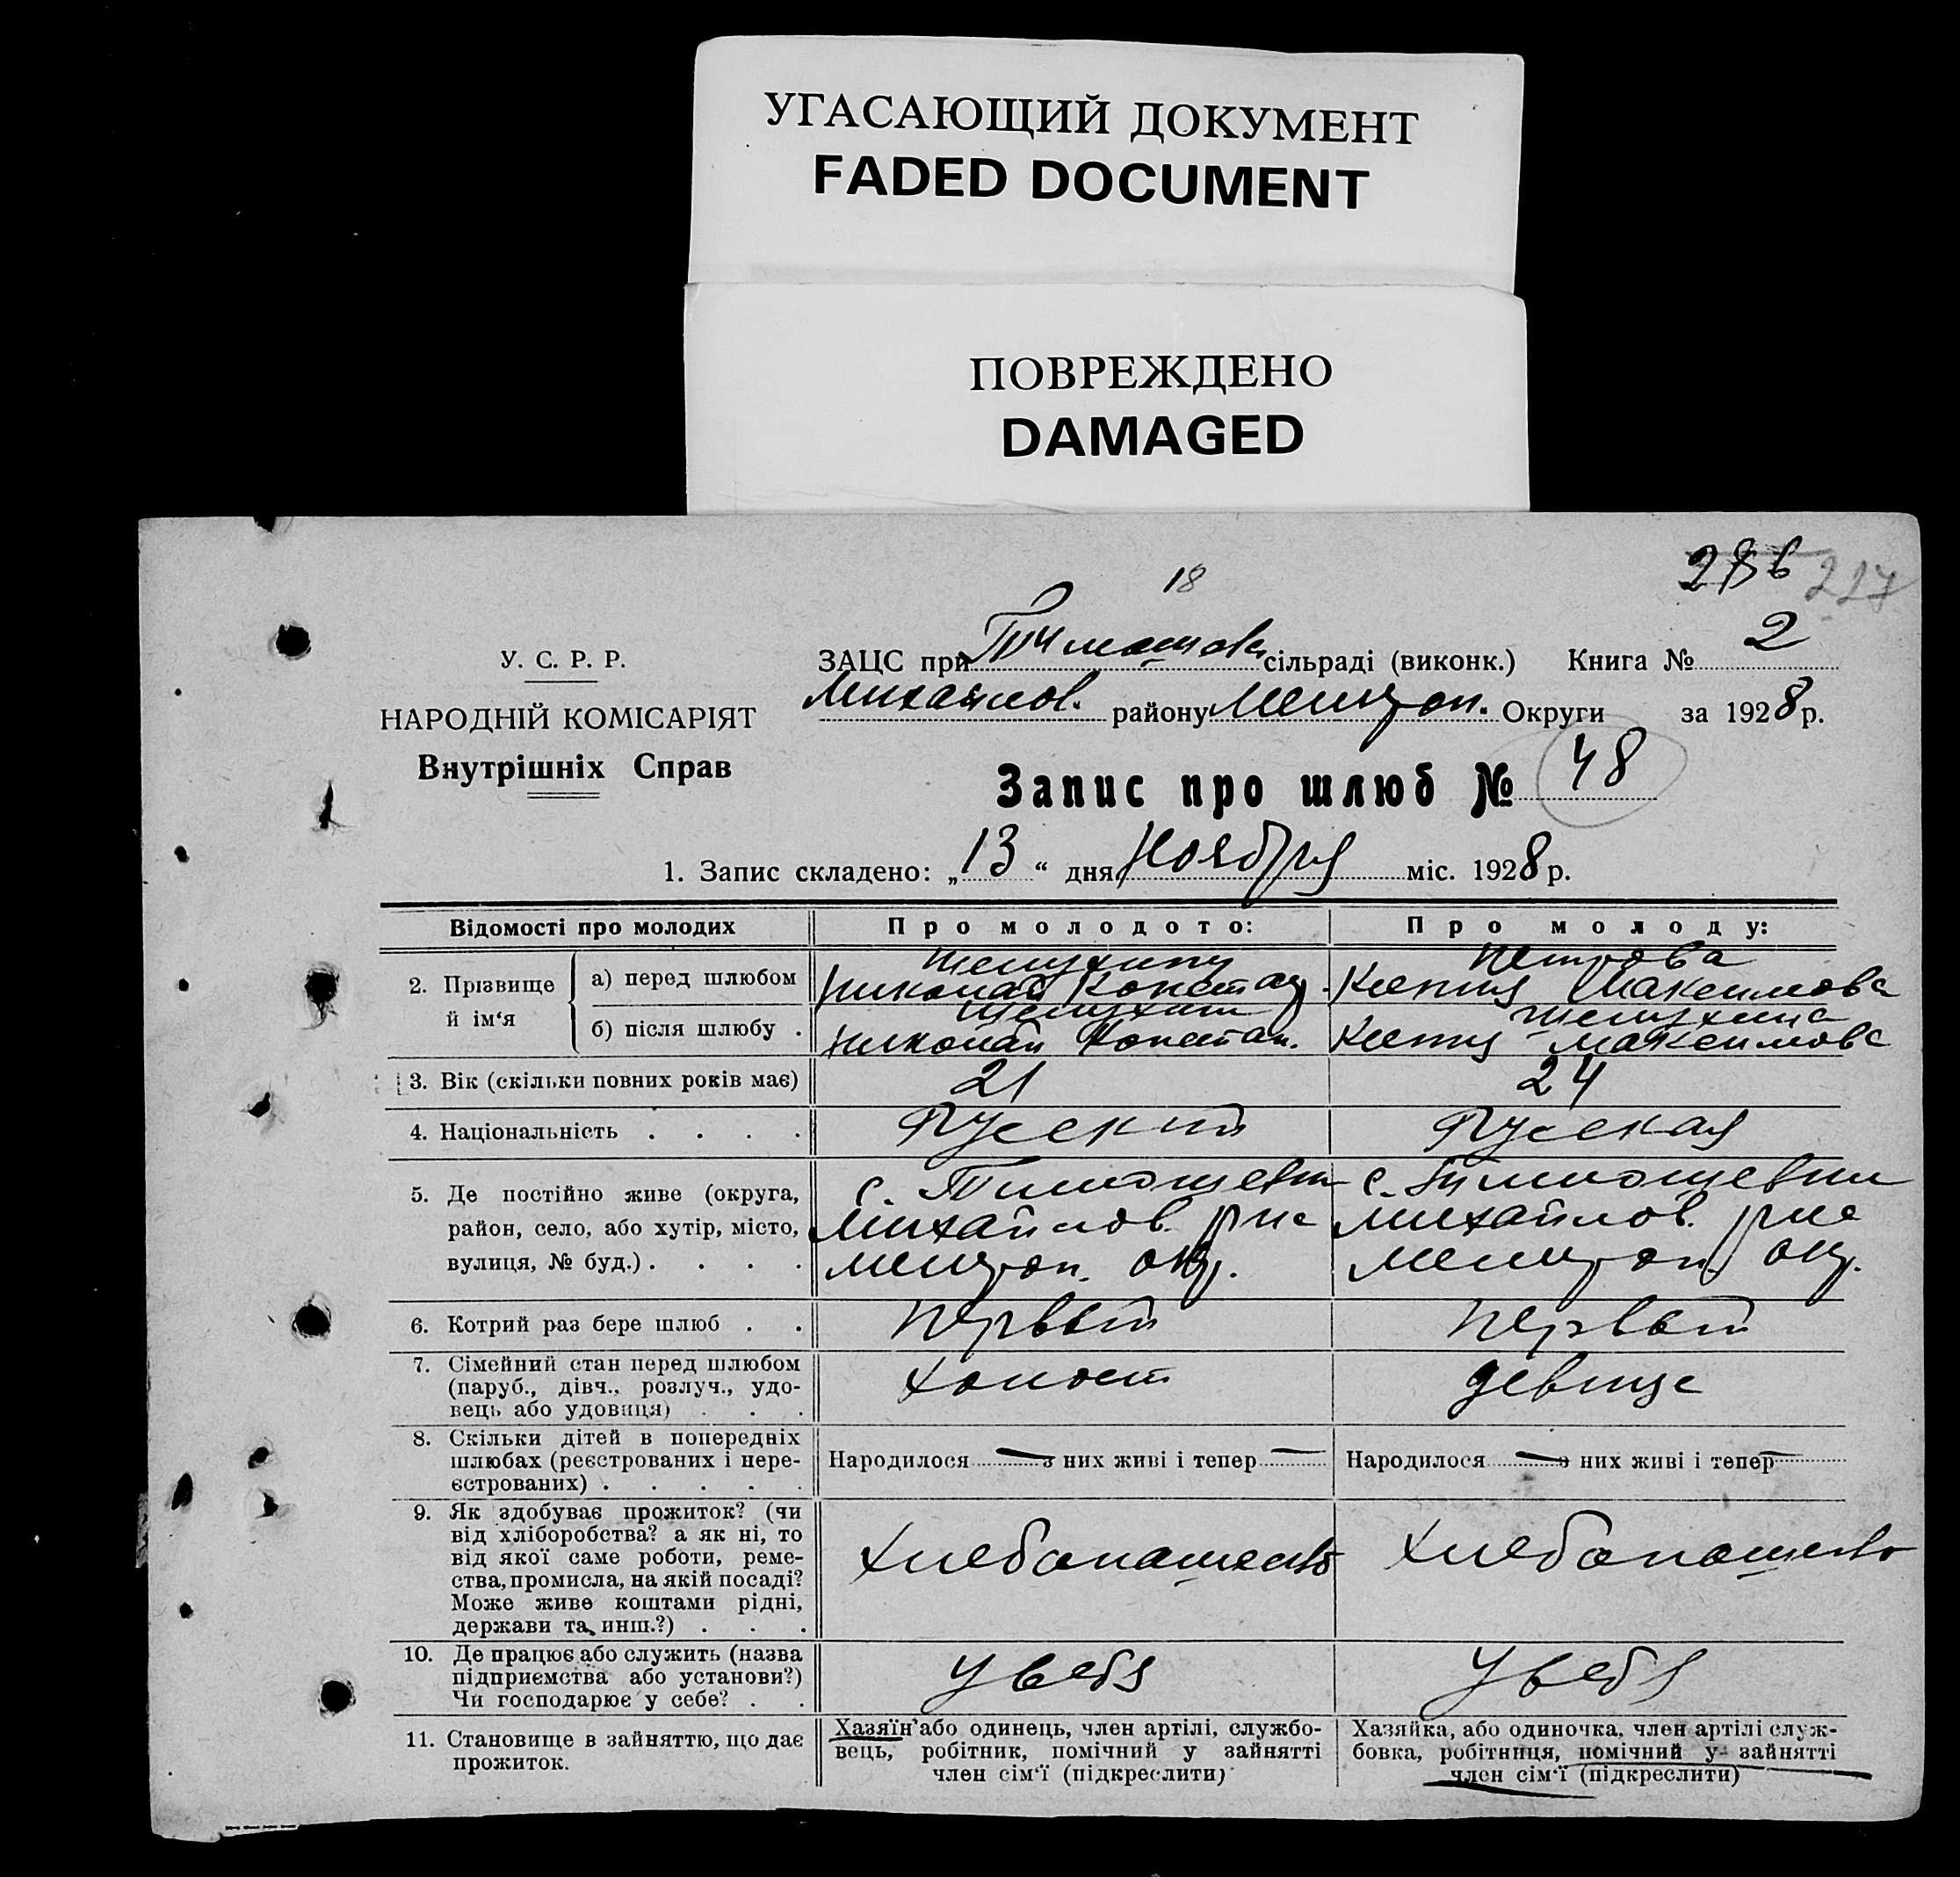 УГАСАЮЩИЙ ДОКУМЕНТ
FADED DOCUMENT
ПОВРЕЖДЕНО
DAMAGED
286 227
18
У. С. Р. Р.
НАРОДНІЙ КОМІСАРІЯТ
Внутрішніх Справ
ЗАЦС при Тимошов сільраді (виконк.) Книга № 2
Михайлов. району Мелитоп. Округи за 1928 р.
Запис про шлюб № 48
1. Запис складено: „13“ дня Ноября міс. 1928 р.
Відомості про молодих
Про молодого:
Про молоду:
2. Прізвище й ім‘я
а) перед шлюбом
Николай Констан.
Петрова
Ксения Максимова
б) після шлюбу .
Николай Констан.
Ксения Максимова
3. Вік (скільки повних років має)
21
24
4. Національність . . . .
Русский
Русская
5. Де постійно живе (округа,
район, село, або хутір, місто,
вулиця, № буд.) . . . .
с. Тимошевки
Михайлов. р-на
Мелитоп. окр.
с. Тимошевки
Михайлов. р-на
Мелитоп. окр.
6. Котрий раз бере шлюб . .
Первый
Первый
7. Сімейний стан перед шлюбом
(паруб., дівч., розлуч., удо-
вець або удовиця) . . .
холост
девица
8. Скільки дітей в попередніх
шлюбах (реєстрованих і нере-
єстрованих) . . . . .
Народилося — з них живі і тепер —
Народилося — з них живі і тепер —
9. Як здобуває прожиток? (чи
від хліборобства? а як ні, то
від якої саме роботи, реме-
ства, промисла, на якій посаді?
Може живе коштами рідні,
держави та инш.?) . . .
Хлебопашество
Хлебопашество
10. Де працює або служить (назва
підприємства або установи?)
Чи господарює у себе? . .
У себя
У себя
11. Становище в зайняттю, що дає
прожиток.
Хазяїн або одинець, член артілі, службо-
вець, робітник, помічний у зайнятті
член сім‘ї (підкреслити)
Хазяйка, або одиночка, член артілі служ-
бовка, робітниця, помічний у зайнятті
член сім‘ї (підкреслити)